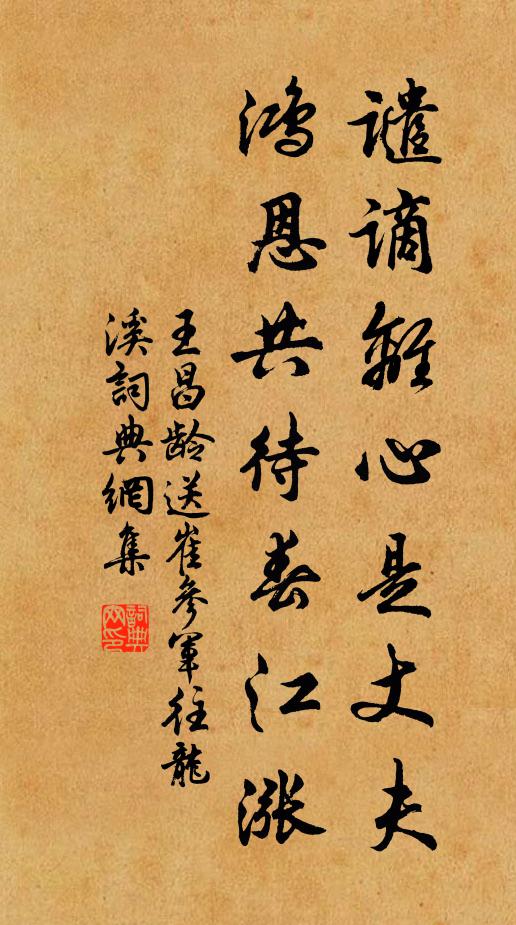 譴謫離心是丈夫
鴻恩共待春江漲
王昌齡送崔參軍往龍
溪詞典網集
詞典
网印